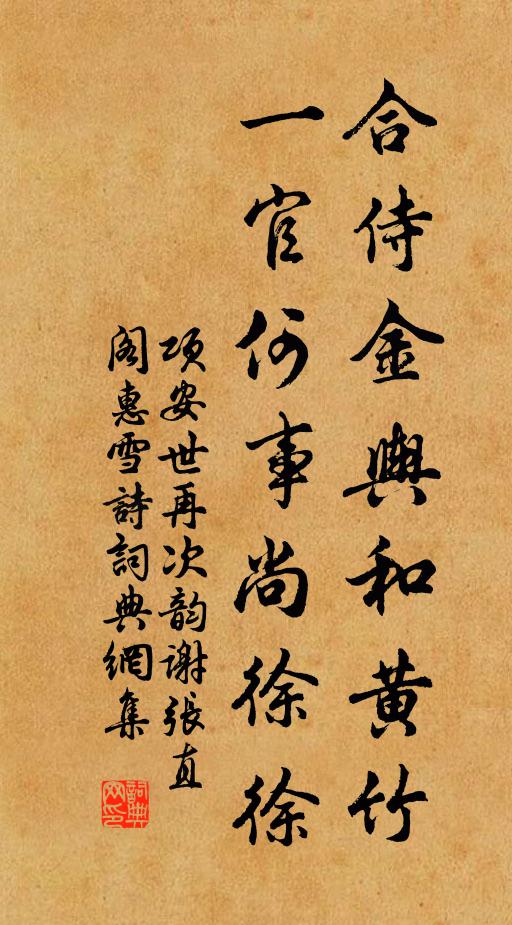 合侍金輿和黄竹
一官何事尚徐徐
項安世再次韵謝張直
閣惠雪詩詞典網集
詞典
网印